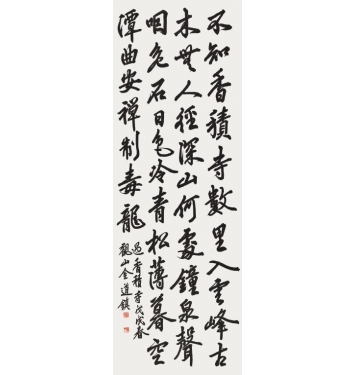 不知香積寺數里入雲峰古
木無人徑深山何處鐘泉聲
咽危石日色冷青松薄暮空
潭曲安禪制毒龍
過香積寺戊戌春
山金道鎮